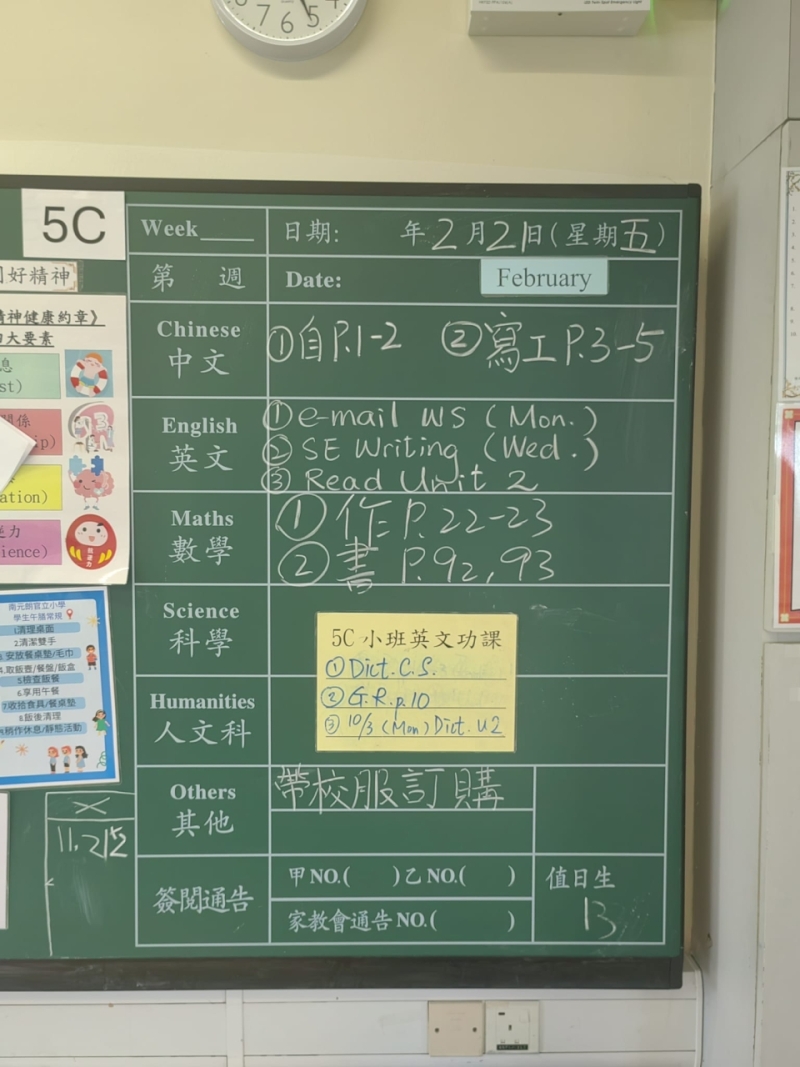 7 6 5
5C
Week____ 日期: 年2月21日(星期五)
第 週 Date: February
好精神
精神健康約章》
大要素
Chinese ①自P.1-2 ②寫工P.3-5
中文
English ①e-mail WS (Mon.)
英文 ②SE Writing (Wed.)
③Read Unit 2
Maths ①作P.22-23
數學 ②書 P.92,93
Science
科學
5C小班英文功課
①Dict.C.S.
②G.R.p.10
③10/3 (Mon) Dict. U2
Humanities
人文科
Others 帶校服訂購
其他
簽閱通告 甲NO.( )乙NO.( ) 值日生
家教會通告NO.( ) 13
南元朗官立小學
學生午膳常規
1清理桌面
2清潔雙手
3.安放餐桌墊/毛巾
4.取飯壺/餐盤/飯盒
5檢查飯餐
6享用午餐
7收拾食具/餐桌墊
8飯後清理
稍作休息/靜態活動